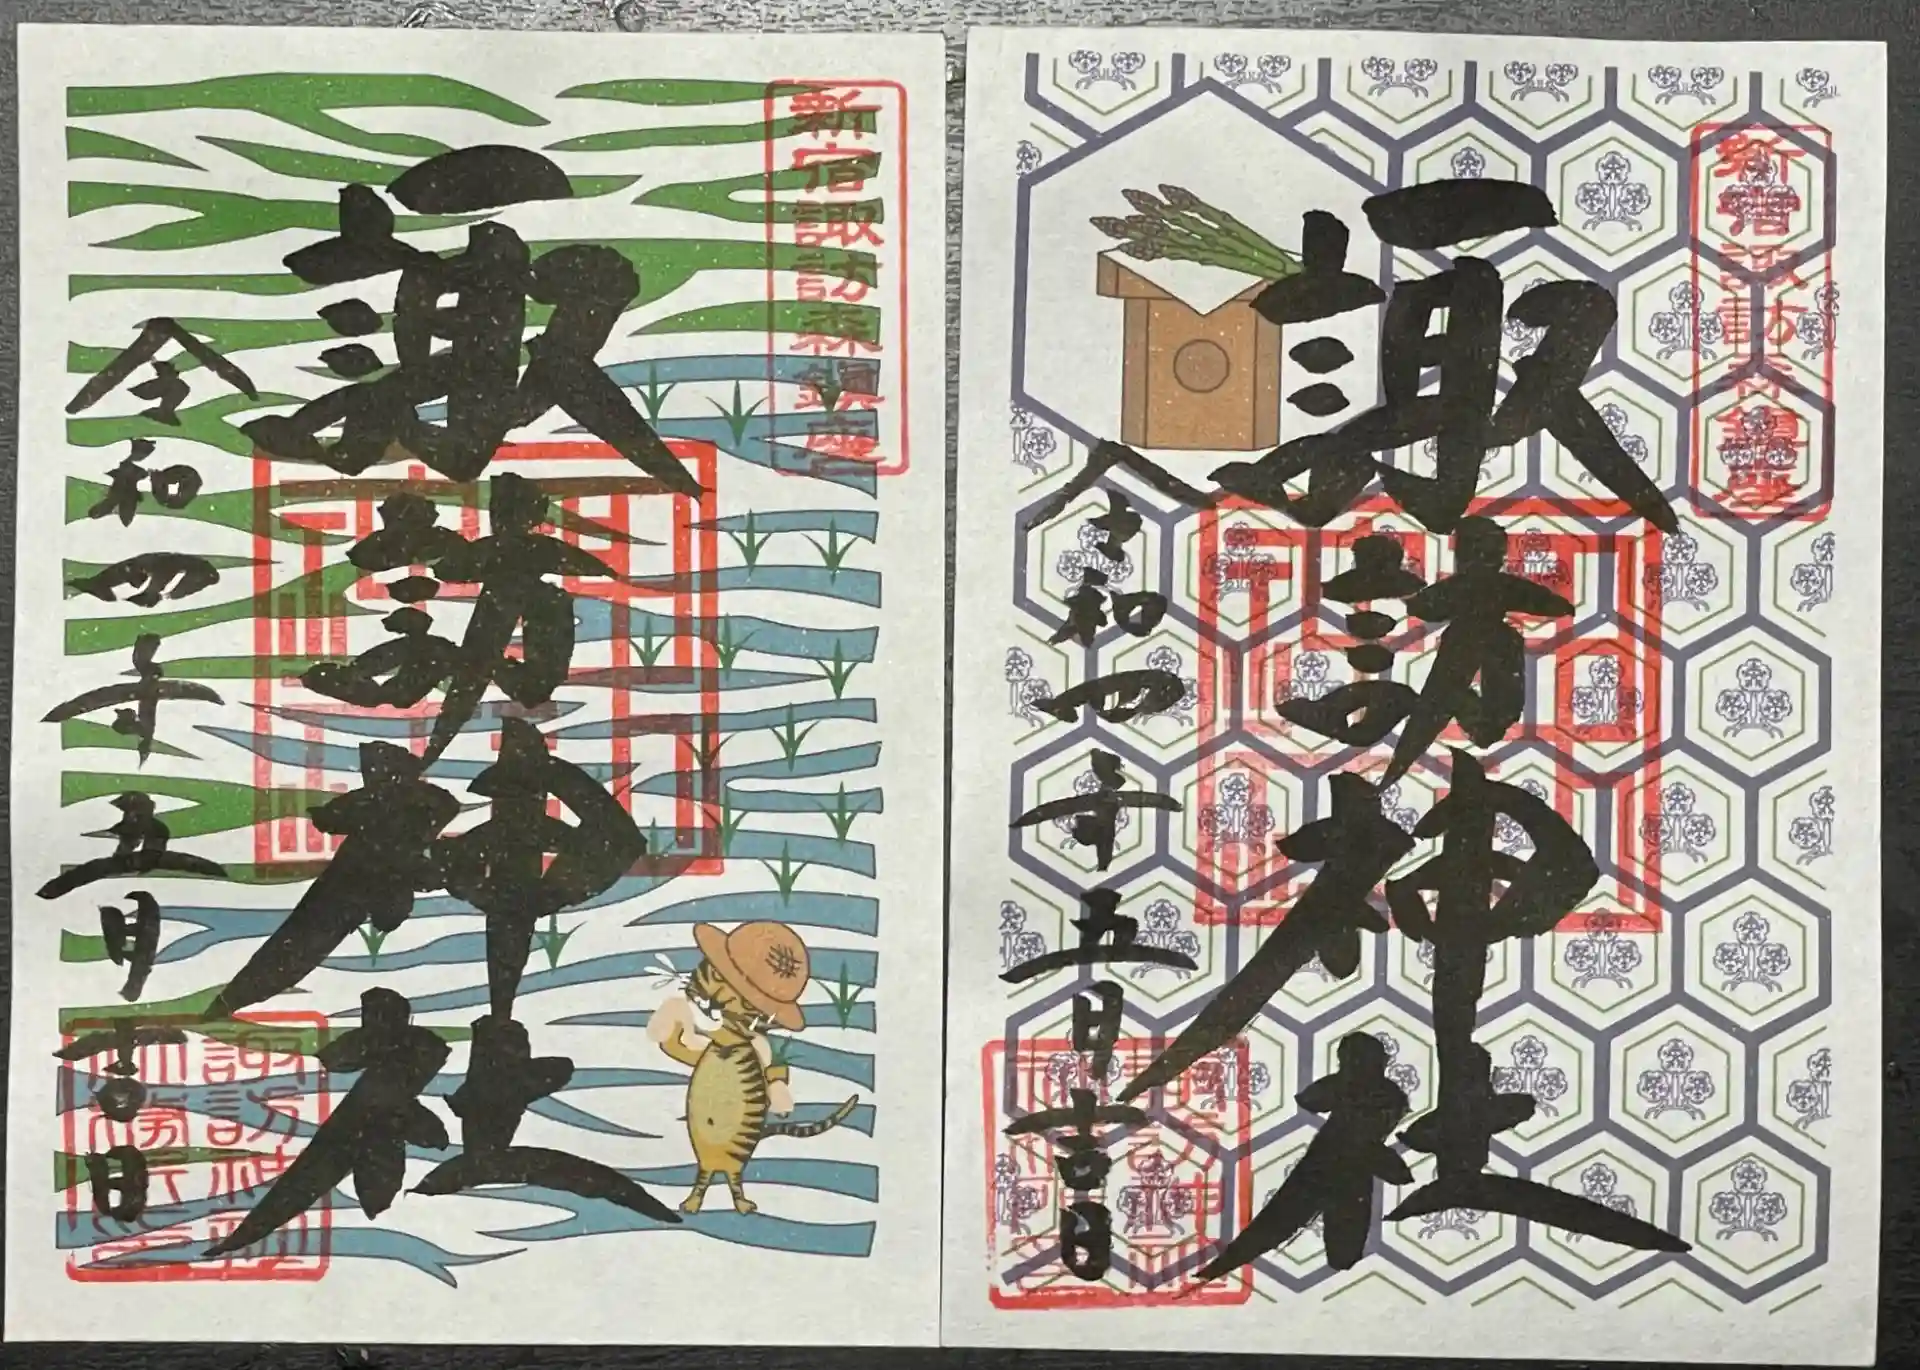 新宿諏訪森鎮座
諏訪神社
令和四年五月吉日
新宿諏訪森鎮座
諏訪神社
令和四年五月吉日